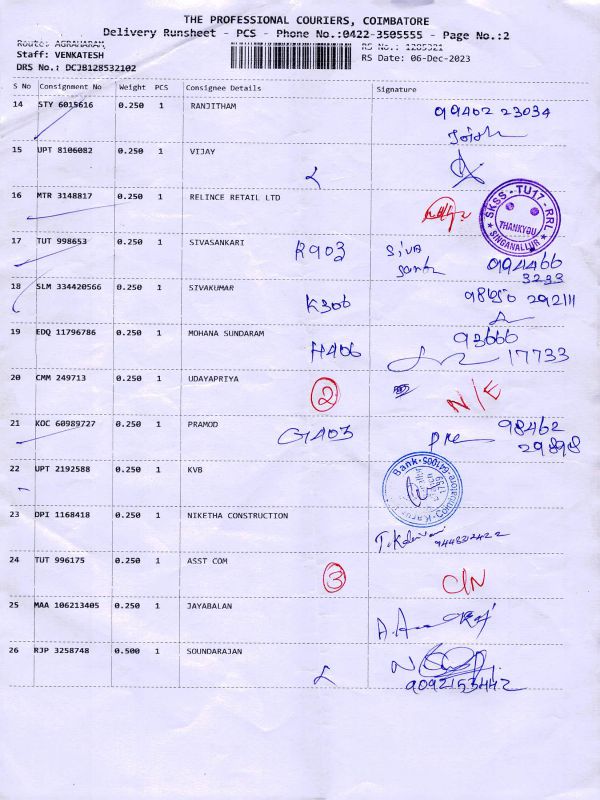 THE PROFESSIONAL COURIERS, COIMBATORE
Delivery Runsheet - PCS - Phone No.:0422-3505555 - Page No.:2
Route: AGRAHARAM
Staff: VENKATESH
DRS No.: DCJB128532102
RS No.: 1285321
RS Date: 06-Dec-2023
S No Consignment No Weight PCS Consignee Details Signature
14 STY 6015616 0.250 1 RANJITHAM 99402 23034
15 UPT 8106082 0.250 1 VIJAY
16 MTR 3148817 0.250 1 RELINCE RETAIL LTD
SKSS - TU17 - RRL
THANKYOU
SINGANALLUR
17 TUT 998653 0.250 1 SIVASANKARI R903 Siva
994466
3233
18 SLM 334420566 0.250 1 SIVAKUMAR K306
19 EDQ 11796786 0.250 1 MOHANA SUNDARAM H406 93666
17733
20 CMM 249713 0.250 1 UDAYAPRIYA 2 N/E
21 KOC 60989727 0.250 1 PRAMOD G1403 98462
29898
22 UPT 2192588 0.250 1 KVB
Bank
Coimbatore-641005
23 DPI 1168418 0.250 1 NIKETHA CONSTRUCTION
24 TUT 996175 0.250 1 ASST COM 3
25 MAA 106213405 0.250 1 JAYABALAN
26 RJP 3258748 0.500 1 SOUNDARAJAN
9092153442